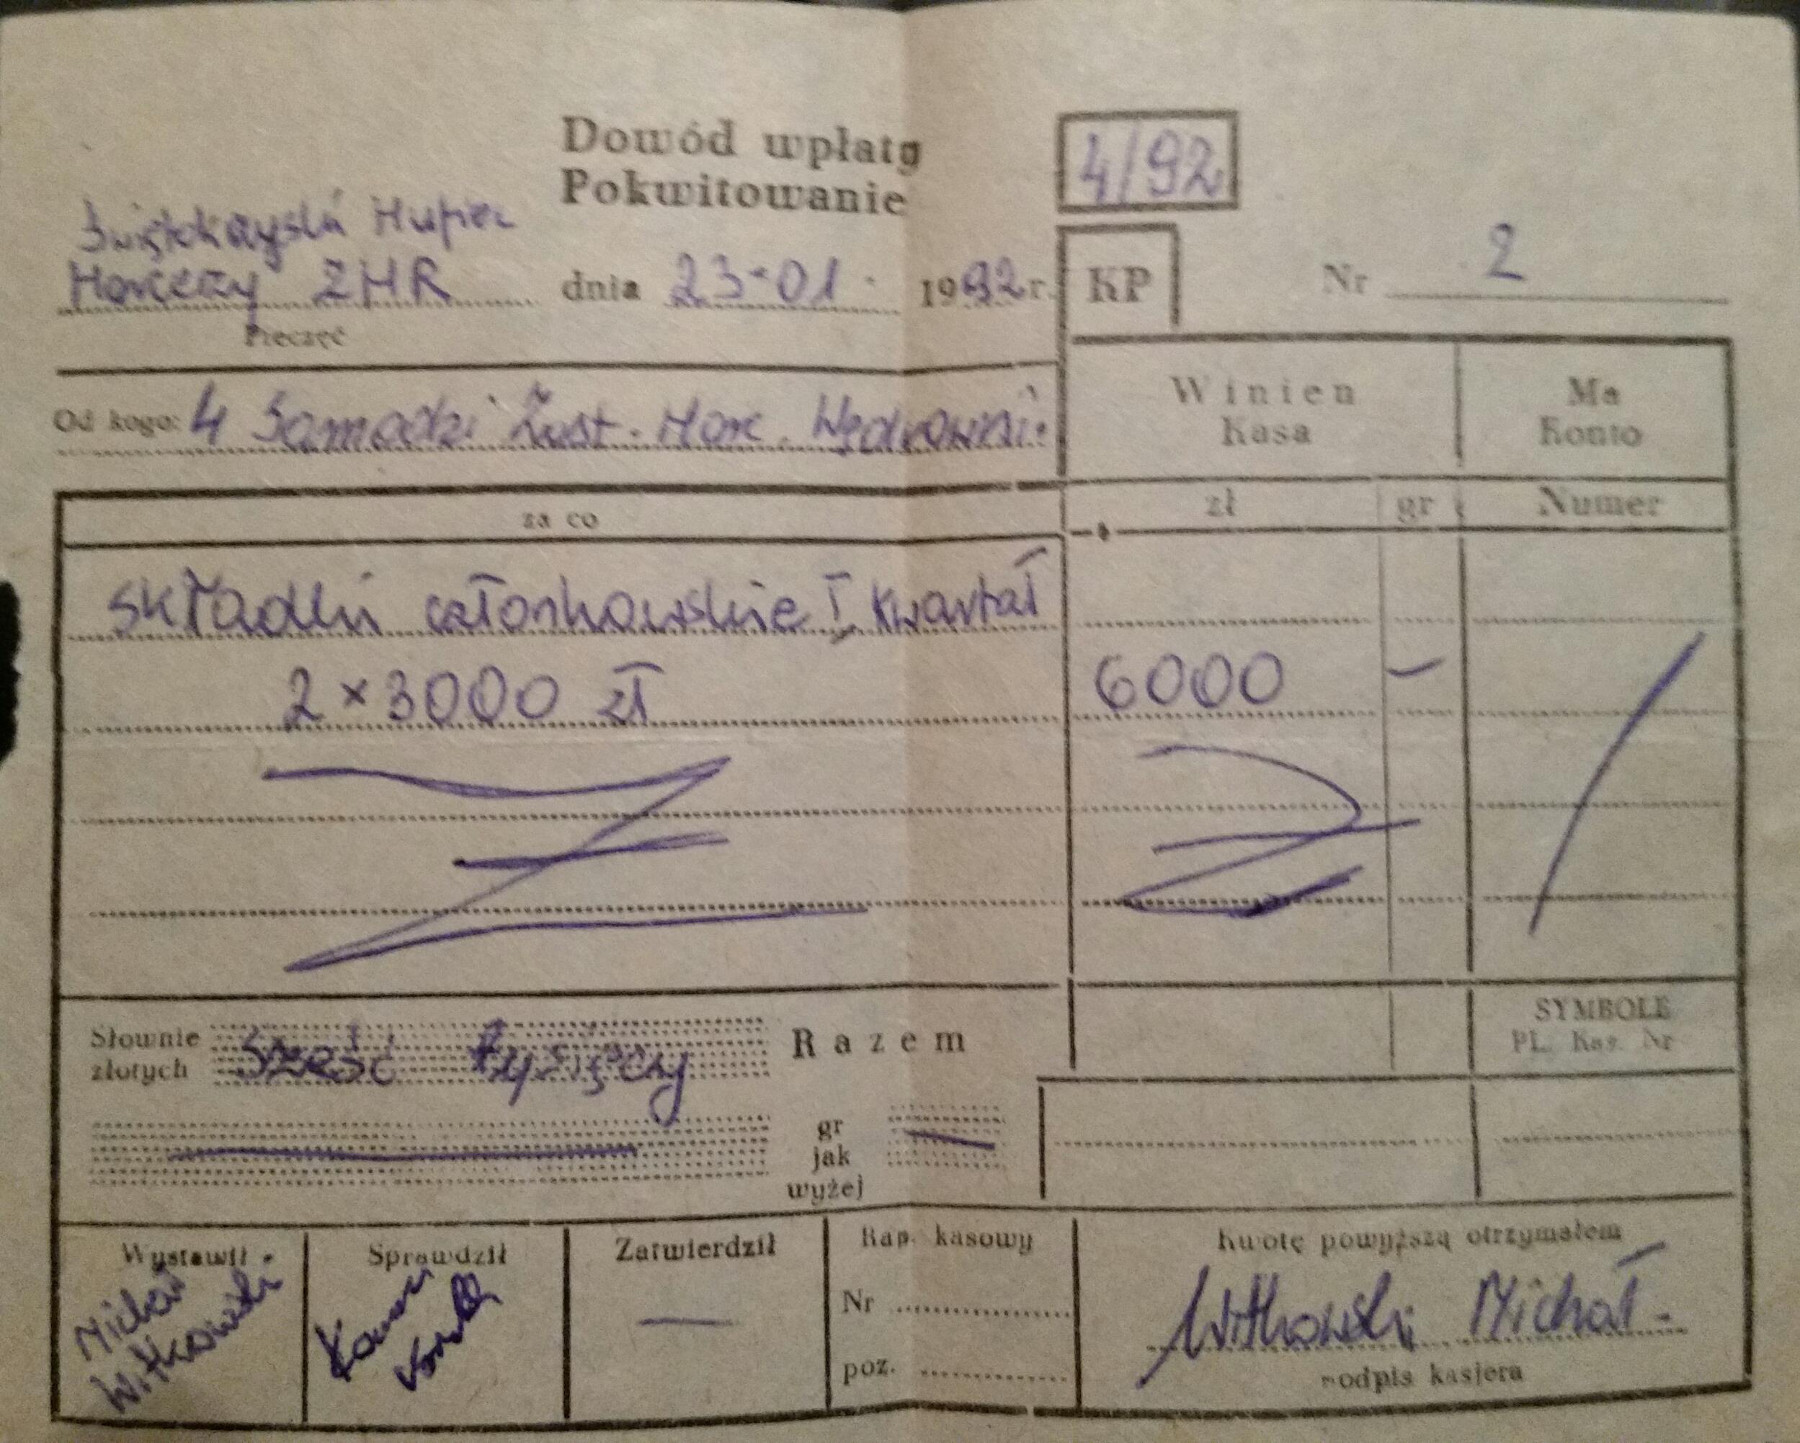 Dowód wpłaty
Pokwitowanie
4/92
Świętokrzyski Hufiec
Harcerzy ZHR
dnia 23-01. 1992 r.
KP
Nr 2
Pieczęć
Od kogo: 4 Samodz. Zast. Harc. Wędrown.
Winien
Kasa
Ma
Konto
za co
zł gr
Numer
składki członkowskie I kwartał
2 x 3000 zł 6000 —
Słownie
złotych sześć tysięcy
Razem
SYMBOLE
PL. Kas. Nr
gr
jak
wyżej
Wystawił
Michał
Witkowski
Sprawdził
Zatwierdził
—
Rap. kasowy
Nr
poz.
Kwotę powyższą otrzymałem
Witkowski Michał
podpis kasjera